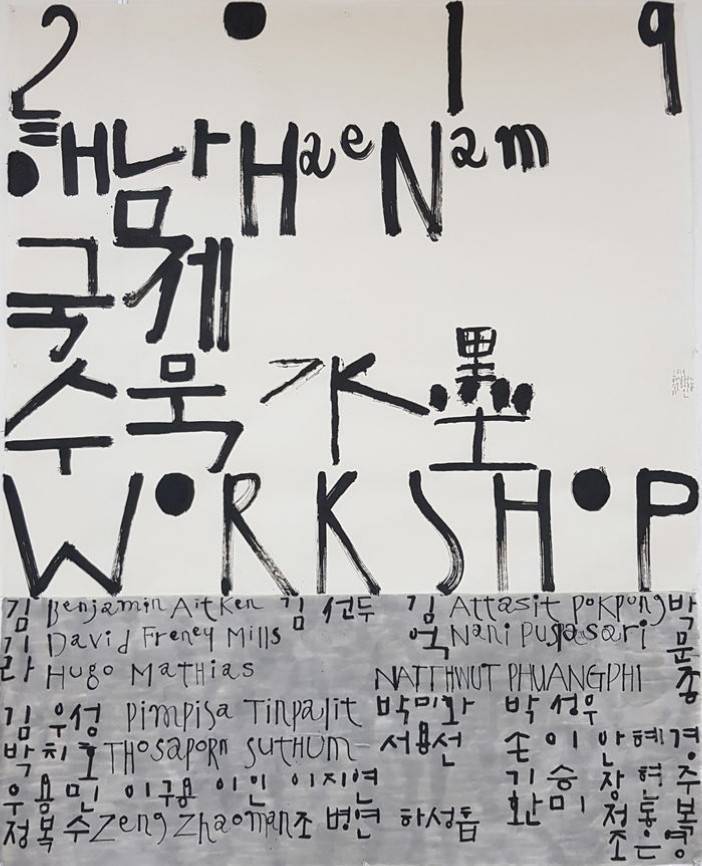 2 • 1 9
해남 HaeNam
국제
수묵 水墨
WORKSHOP
김 Benjamin Aitken 김선두 김 Attasit Pokpong 박
기 David Freney Mills 억 Nani Puspasari 문
라 Hugo Mathias NATTHWUT PHUANGPHI 종
김우성 Pimpisa Tinpalit 박미화 박성우
박치호 Thosaporn Suthum 서용선 손 이 안혜경
우용민 이구용 이인 이지연 기 승 장현주
정복수 Zeng Zhaoman 조병연 하성흡 환 미 정통복
조은영